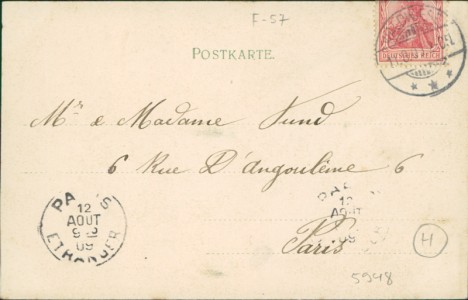 F-57
POSTKARTE.
DEUTSCHES REICH
Mr e Madame Fund
6 Rue D'Angoulême 6
PARIS
12
AOUT
09
ETRANGER
PA
12
AOUT
09
Paris
H
5948